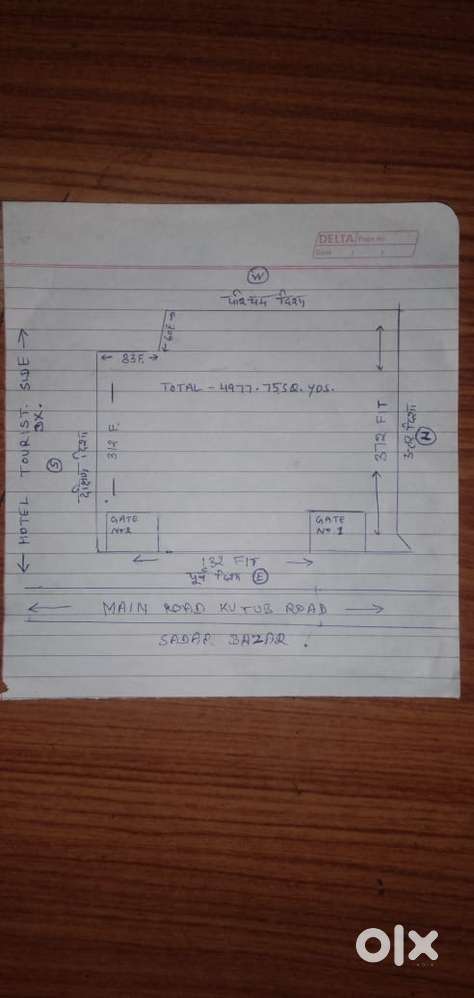 DELTA Page No
Date / /
W
पश्चिम दिशा
60F.
83F.
TOTAL - 4977.75 SQ.YDS.
HOTEL TOURIST. SIDE
BX.
S
दक्षिण दिशा
312 F.
372 FIT
उत्तर दिशा
N
GATE
No 2
GATE
No 1
132 FIT
पूर्व दिशा E
MAIN ROAD KUTUB ROAD
SADAR BAZAR.
olx